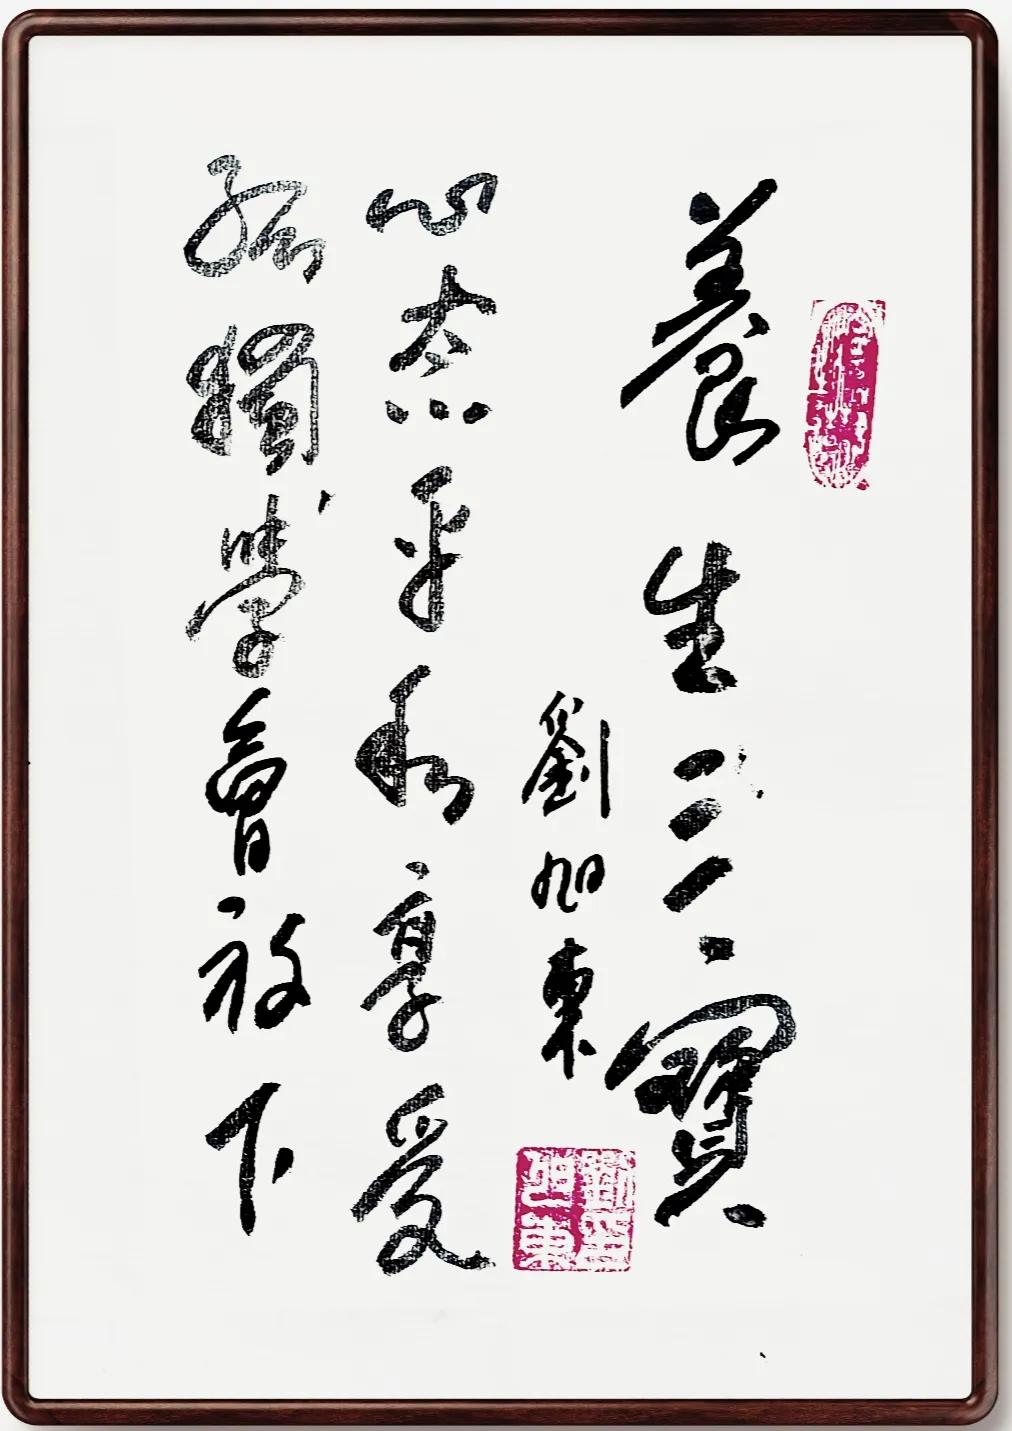 養生三寶
劉旭東
心态平和享受
孤獨學會放下